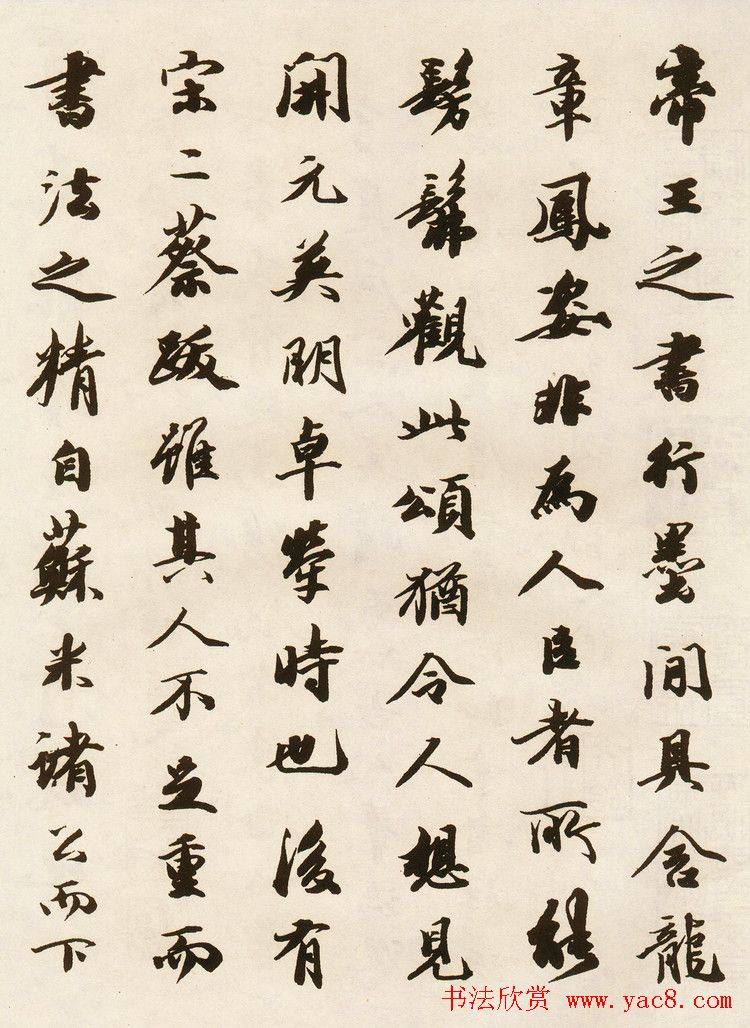 帝王之書行墨間具含龍
章鳳姿非為人臣者所能
髣髴觀此頌猶令人想見
開元英明卓犖時也後有
宋二蔡跋雖其人不足重而
書法之精自蘇米諸公而下
书法欣赏 www.yac8.com